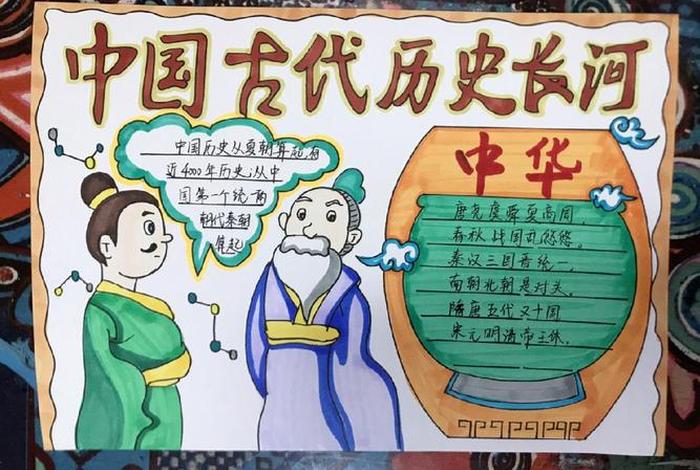 中国古代历史长河
中国历史从夏朝算起,有
近4000年历史;从中
国第一个统一的
朝代秦朝
算起
中华
唐尧虞舜夏商周,
春秋战国乱悠悠。
秦汉三国晋统一,
南朝北朝是对头。
隋唐五代又十国
宋元明清帝王休。